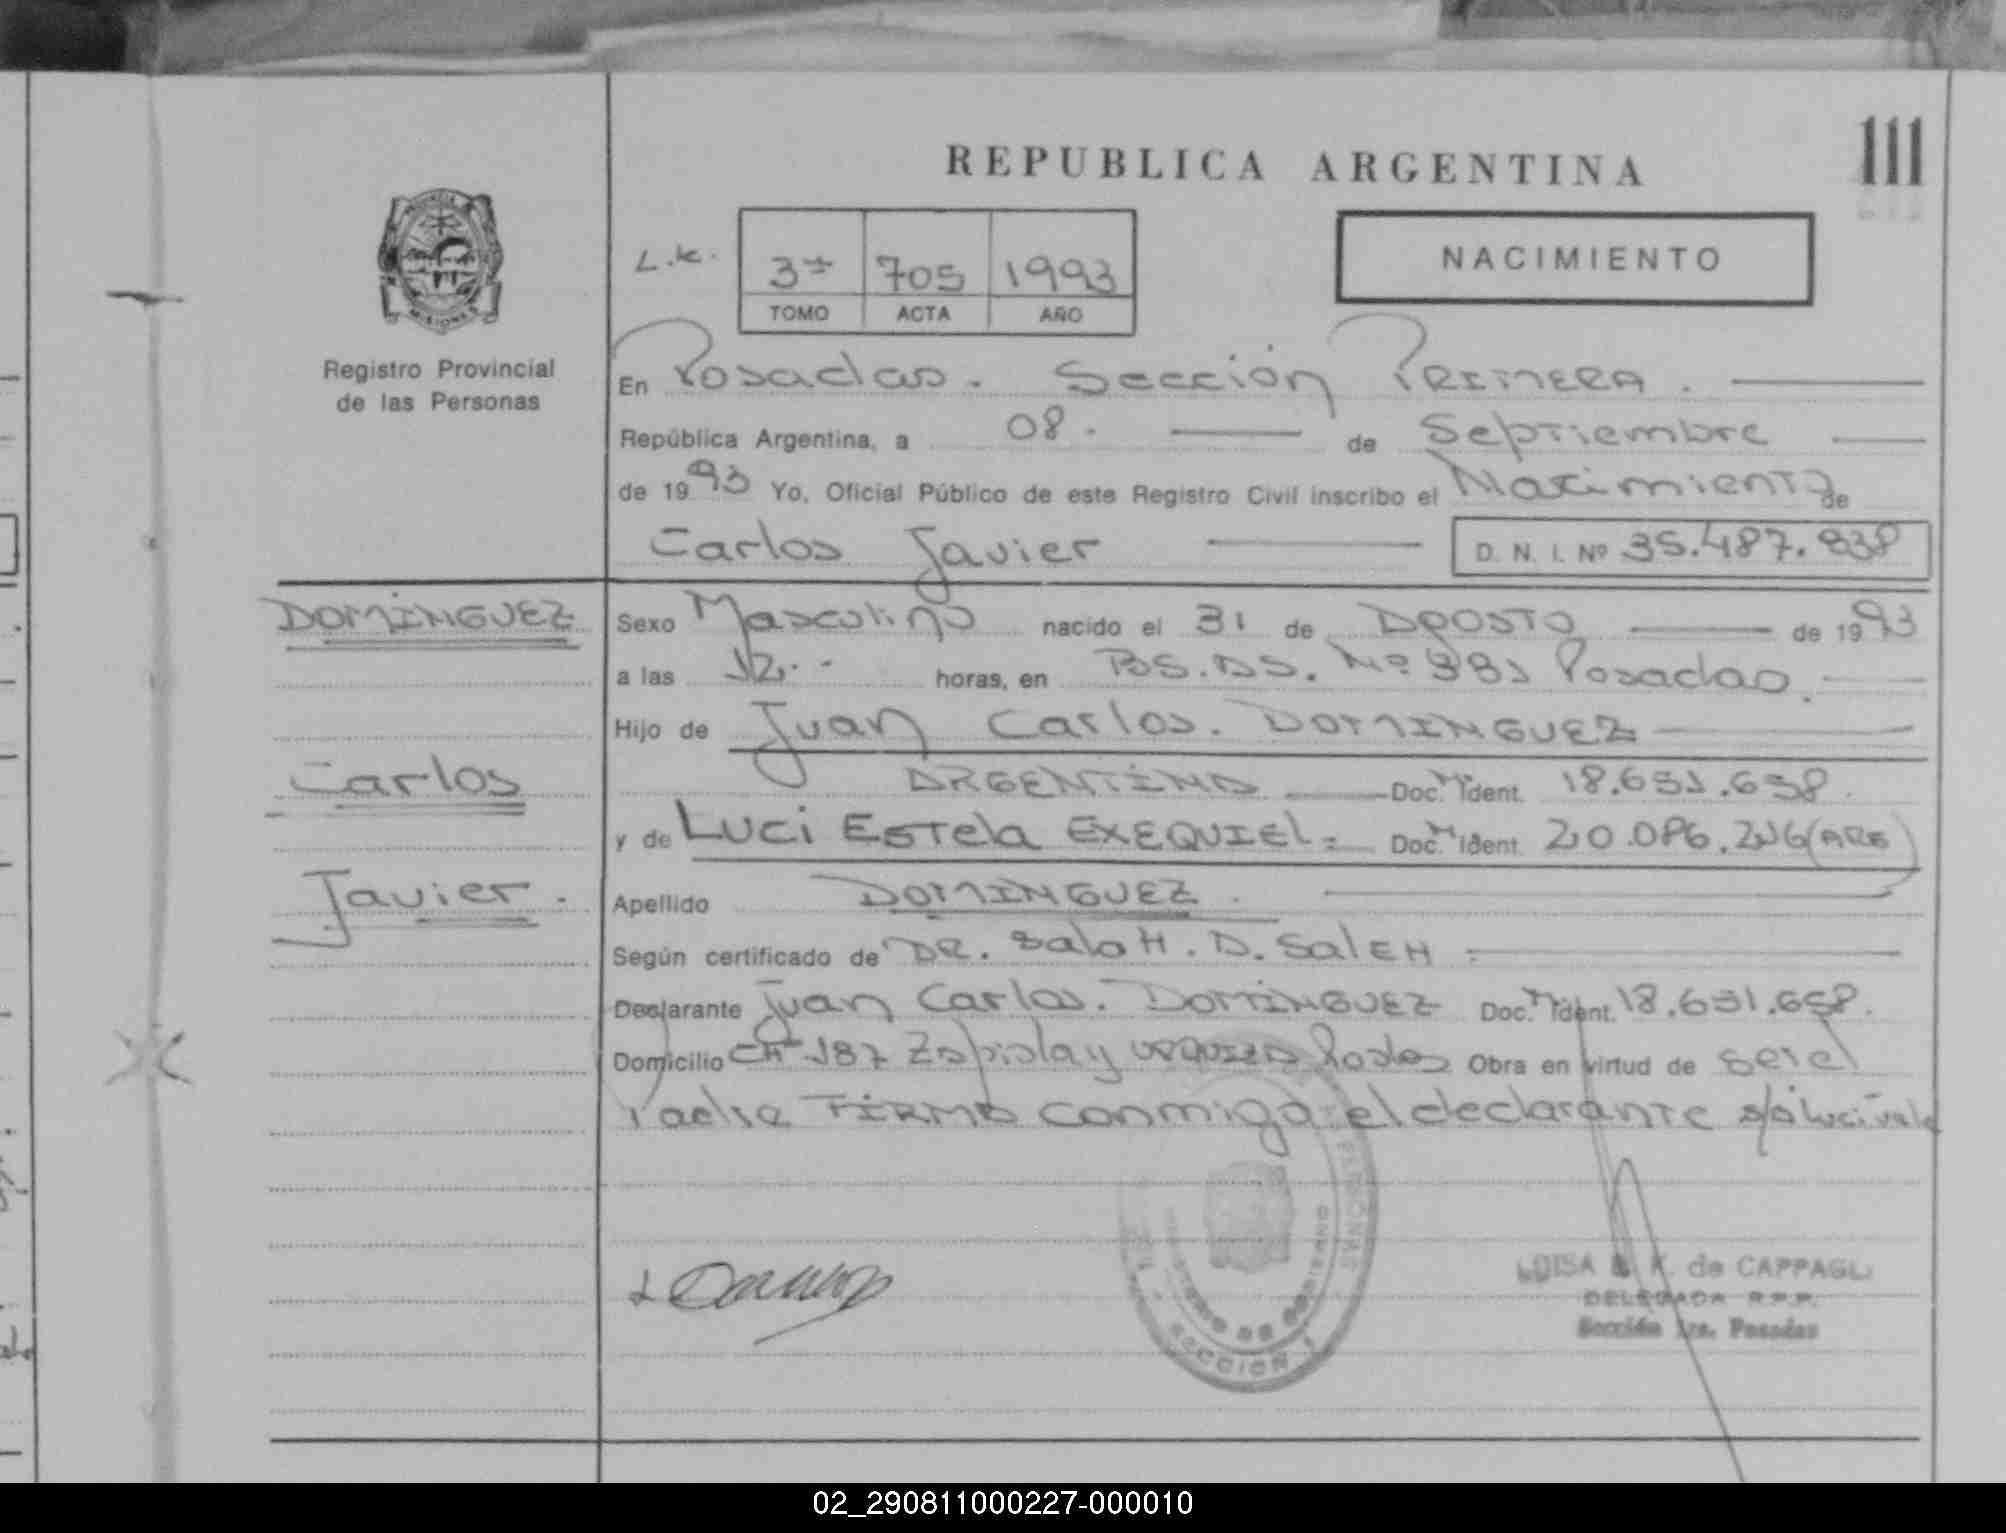 111
REPUBLICA ARGENTINA
NACIMIENTO
L.K.
3º 705 1993
TOMO ACTA AÑO
MISIONES
Registro Provincial
de las Personas
En Posadas. Sección PRIMERA.
República Argentina, a 08. de Septiembre
de 1993 Yo, Oficial Público de este Registro Civil inscribo el Nacimiento de
Carlos Javier D. N. I. Nº 35.487.838
DOMINGUEZ
Carlos
Javier.
Sexo Masculino nacido el 31 de AGOSTO de 1993
a las 12.. horas, en Posadas.
Hijo de Juan Carlos. DOMINGUEZ
ARGENTINO Doc. M. Ident. 18.631.658.
y de LUCI ESTela EXEQUIEL. Doc. M. Ident. 20.086.216 (ARG)
Apellido DOMINGUEZ.
Según certificado de DR. Salah. D. SalEH
Declarante Juan Carlos. DOMINGUEZ Doc. M. Ident. 18.631.658.
Domicilio CH 187 Zapiola y URQUIZA Posdas Obra en virtud de ser el
Padre FIRMA conmigo el declarante s/o Luci vale
PERSONAS
MINISTERIO DE GOBIERNO
SECCION 1
LUISA K. de CAPPAGLI
DELEGADA R.P.P.
Sección 1ra. Posadas
02_290811000227-000010